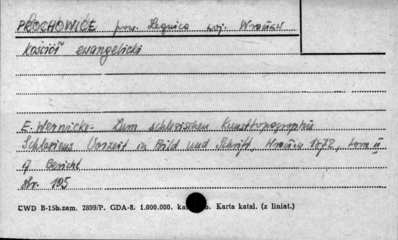 PROCHOWICE pow. Legnica woj. Wrocław
Kościół ewangelicki
E. Wernicke - Zum schlesischen Kunsttopographie
Schlesiens Vorzeit in Bild und Schrift, 1872, tom II
9 Bericht
Str. 195
CWD B-15b. zam. 2899/P. GDA-8. 1.000.000. Karta katal. (z liniat.)